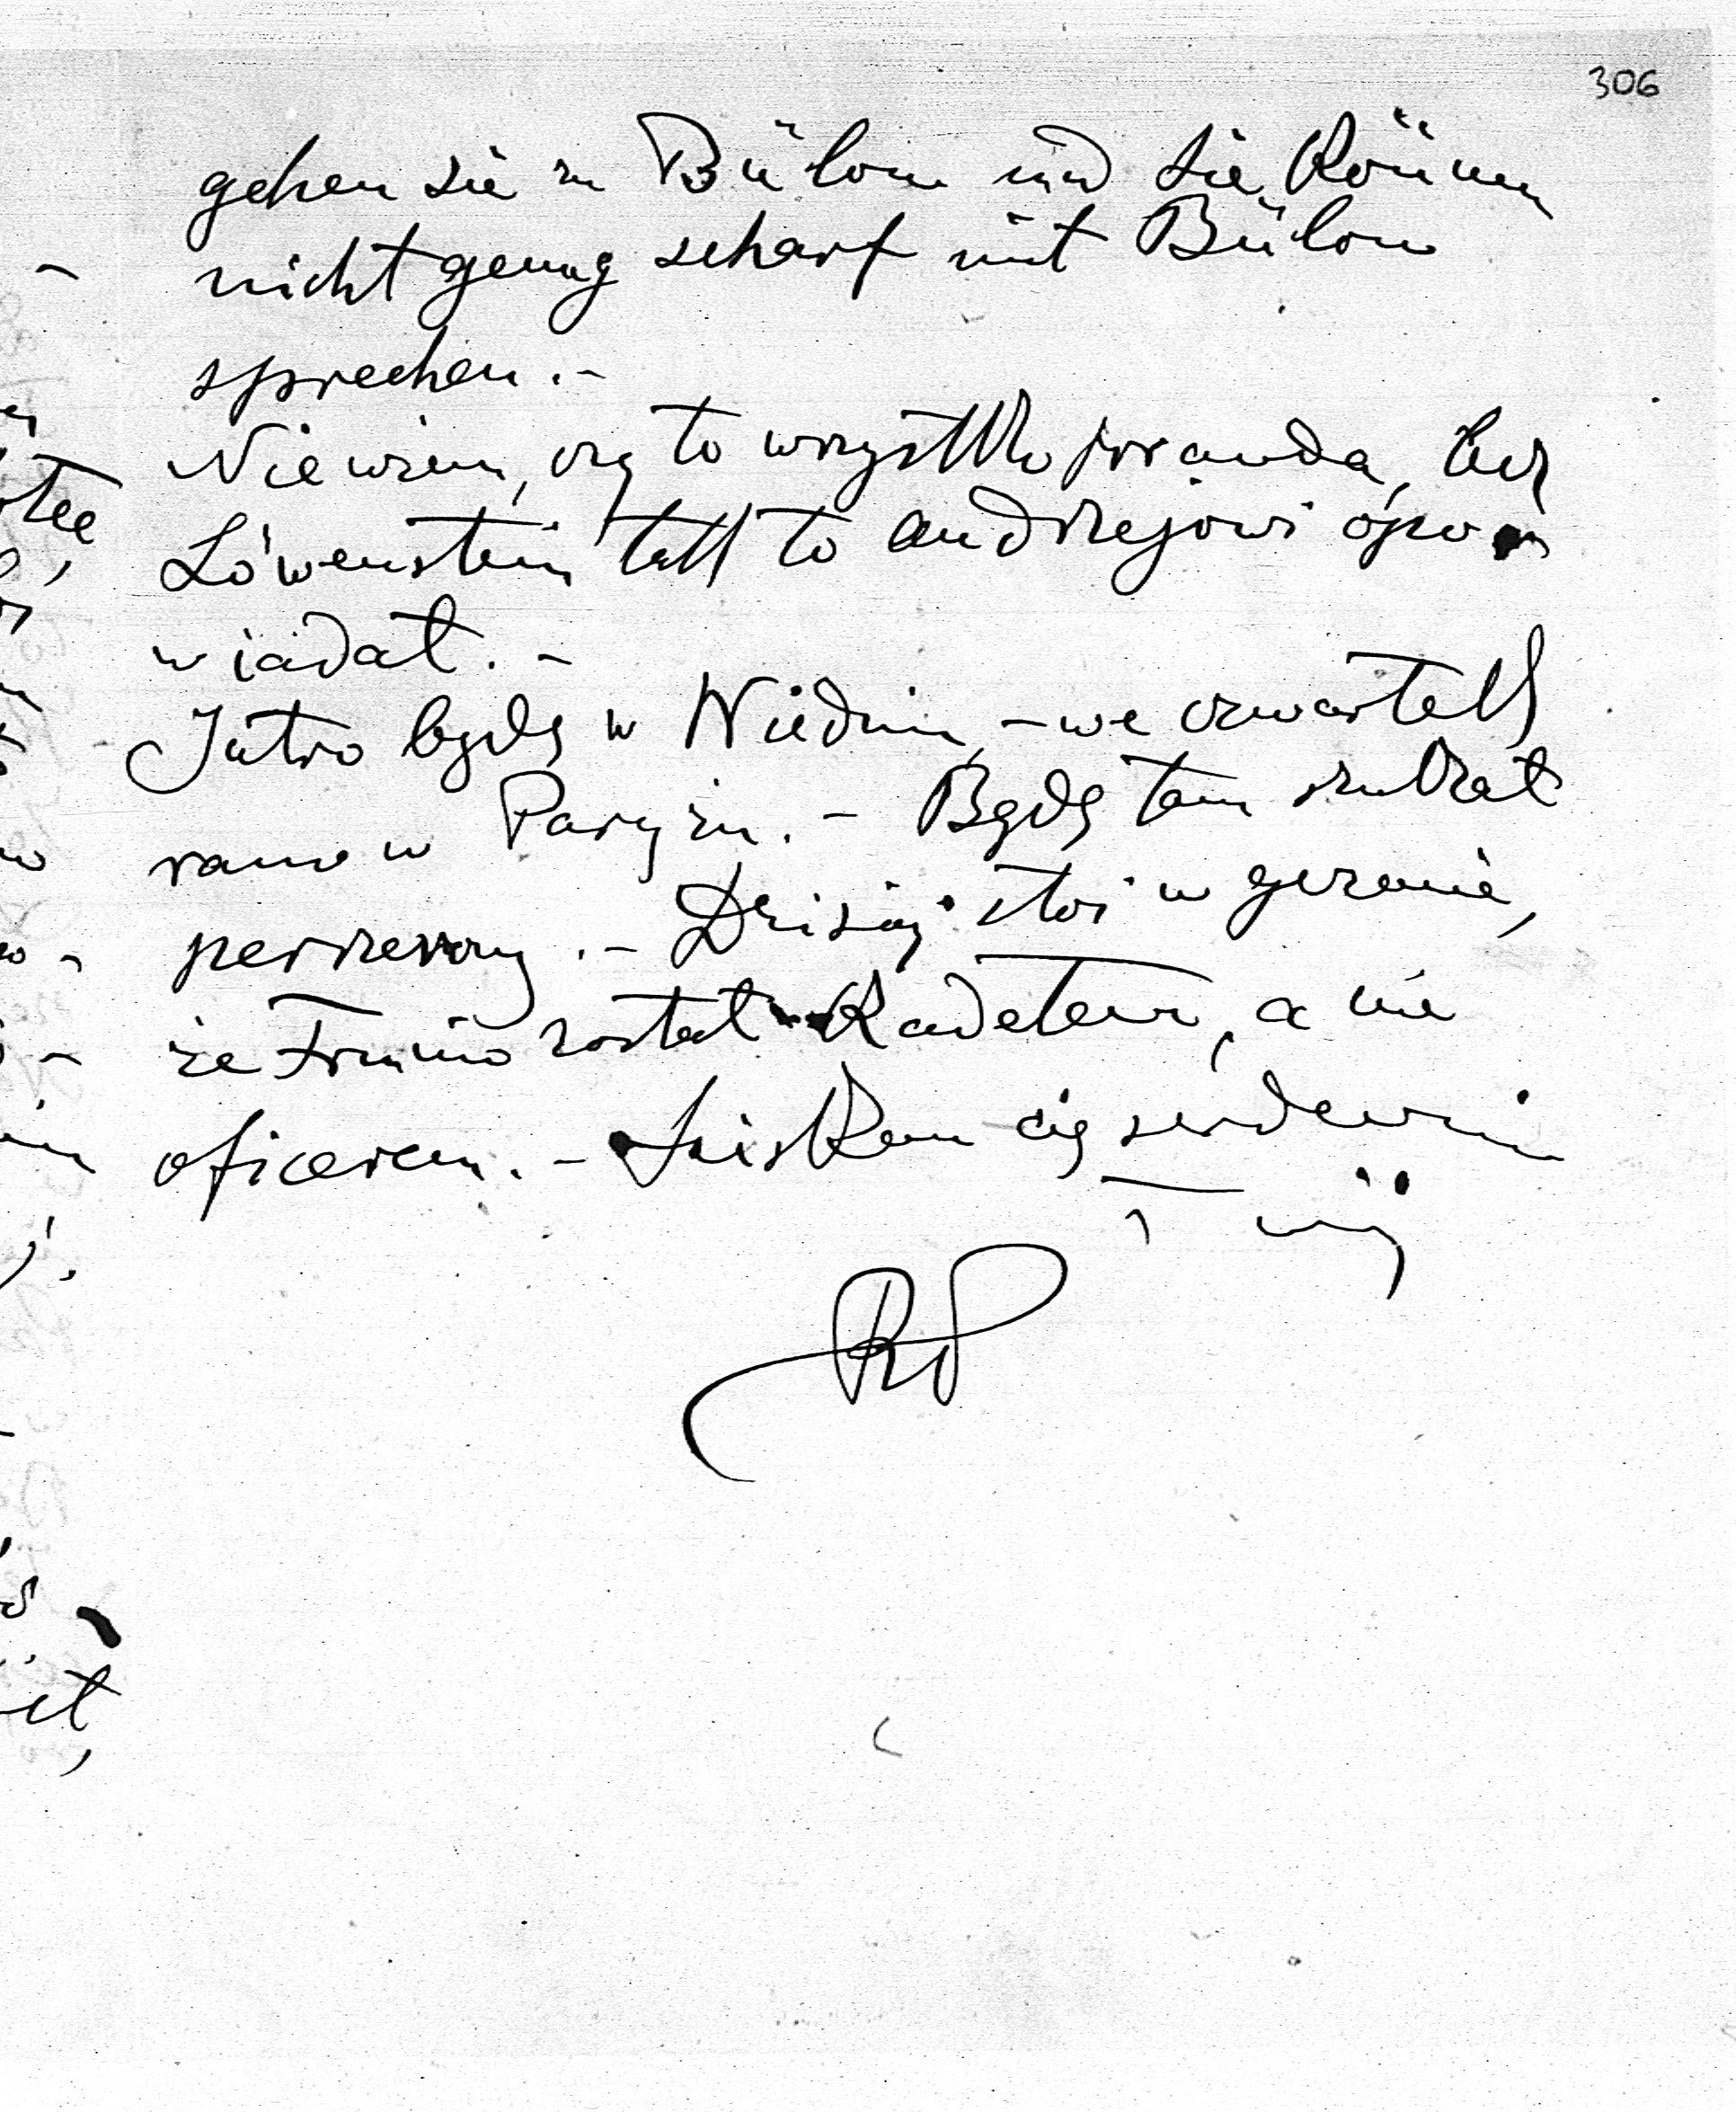 306
gehen sie zu Bülow und sie können
nicht genug scharf mit Bülow
sprechen. -
Nie wiem, czy to wszystko prawda, lecz
Löwenstein tak to Andrzejowi opo
wiadał. -
Jutro będę w Wiedniu, - we czwartek
rano w Paryżu. - Będę tam szukał
. - Dzisiaj stoi w gazecie,
że został Kadetem, a nie
oficerem. - Ściskam cię serdecznie
Twój
RP